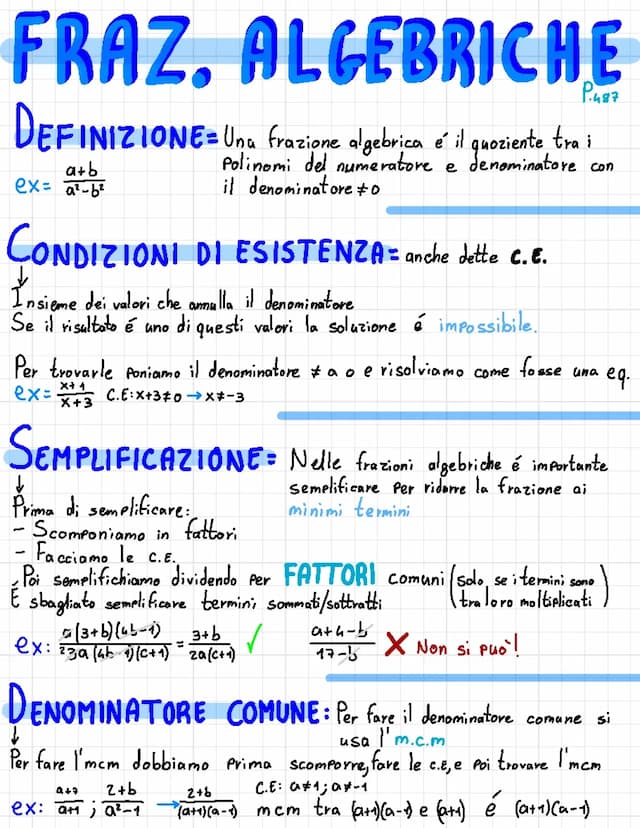 FRAZ. ALGEBRICHE
P.487
DEFINIZIONE= Una frazione algebrica é il quoziente tra i
polinomi del numeratore e denominatore con
il denominatore ≠0
ex= a+b / a²-b²
CONDIZIONI DI ESISTENZA= anche dette C.E.
↓
Insieme dei valori che annulla il denominatore
Se il risultato é uno di questi valori la soluzione é impossibile.
Per trovarle poniamo il denominatore ≠ a 0 e risolviamo come fosse una eq.
ex= x+1 / x+3 C.E:x+3≠0 → x≠-3
SEMPLIFICAZIONE= Nelle frazioni algebriche é importante
semplificare per ridurre la frazione ai
minimi termini
↓
Prima di semplificare:
- Scomponiamo in fattori
- Facciamo le C.E.
Poi semplifichiamo dividendo per FATTORI comuni (solo se i termini sono
tra loro moltiplicati)
É sbagliato semplificare termini sommati/sottratti
ex: a(3+b)(4b-1) / ²3a(4b-1)(c+1) = 3+b / 2a(c+1) ✓ a+4-b / 17-b ✗ Non si puo'!
DENOMINATORE COMUNE: Per fare il denominatore comune si
usa l'm.c.m
↓
Per fare l'mcm dobbiamo prima scomporre, fare le c.E, e poi trovare l'mcm
ex: a+7 / a+1 ; 2+b / a²-1 → 2+b / (a+1)(a-1) C.E: a≠1; a≠-1
mcm tra (a+1)(a-1) e (a+1) é (a+1)(a-1)